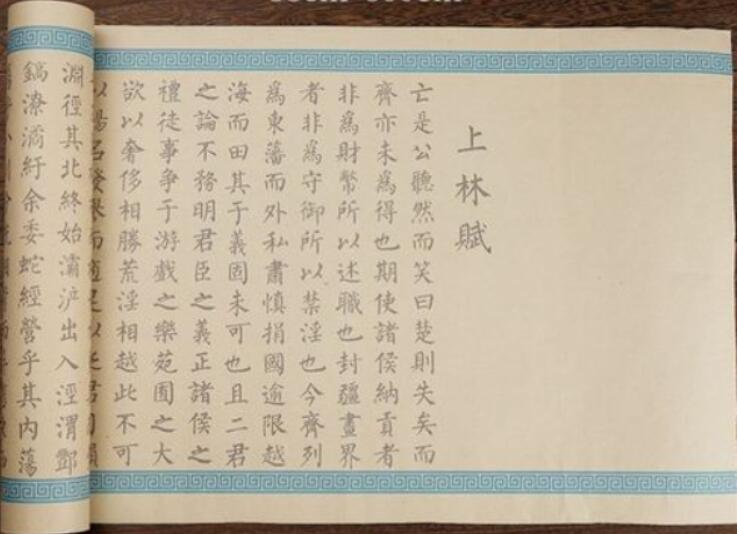 上林賦
亡是公聽然而笑曰楚則失矣而
齊亦未爲得也期使諸侯納貢者
非爲財幣所以述職也封疆畫界
者非爲守御所以禁淫也今齊列
爲東藩而外私肅慎捐國逾限越
海而田其于義固未可也且二君
之論不務明君臣之義正諸侯之
禮徒事爭于游戲之樂苑囿之大
欲以奢侈相勝荒淫相越此不可
以揚名發譽而適足以君自
淵徑其北終始灞滻出入涇渭酆
鎬潦潏紆余委蛇經營乎其內蕩